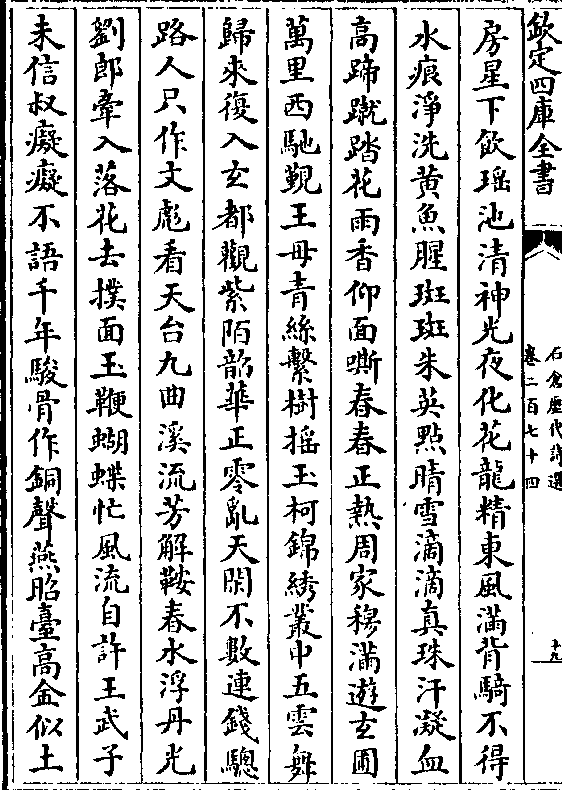 欽定四庫全書
石倉歷代詩選
卷二百七十四
十九
房星下飲瑶池清神光夜化花龍精東風滿背騎不得
水痕淨洗黄魚腥斑斑朱英㸃晴雪滴滴真珠汗凝血
高蹄蹴踏花雨香仰面嘶春春正熱周家穆滿遊玄圃
萬里西馳覲王母青絲繫樹揺玉柯錦綉叢中五雲舞
歸來復入玄都觀紫陌韶華正零亂天閑不數連錢驄
路人只作文彪看天台九曲溪流芳解鞍春水浮丹光
劉郎牽入落花去撲面玉鞭蝴蝶忙風流自許王武子
未信叔癡癡不語千年駿骨作銅聲燕昭臺高金似土